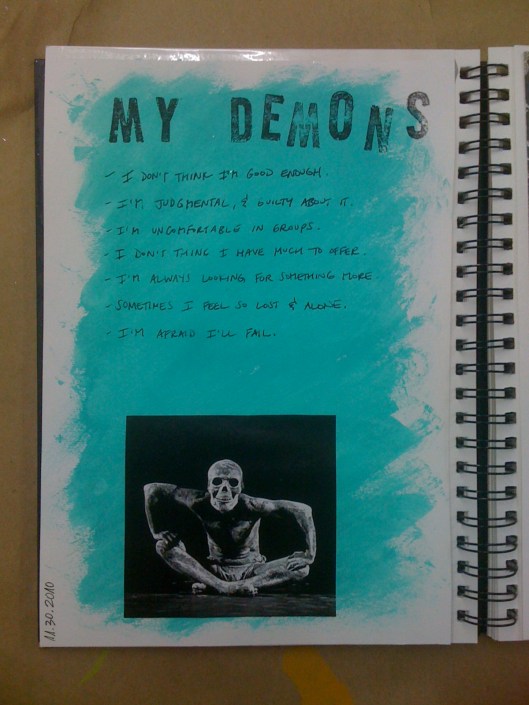 MY DEMONS
- I DON'T THINK I'M GOOD ENOUGH.
- I'M JUDGMENTAL, & GUILTY ABOUT IT.
- I'M UNCOMFORTABLE IN GROUPS.
- I DON'T THINK I HAVE MUCH TO OFFER.
- I'M ALWAYS LOOKING FOR SOMETHING MORE.
- SOMETIMES I FEEL SO LOST & ALONE.
- I'M AFRAID I'LL FAIL.
11.30.2010